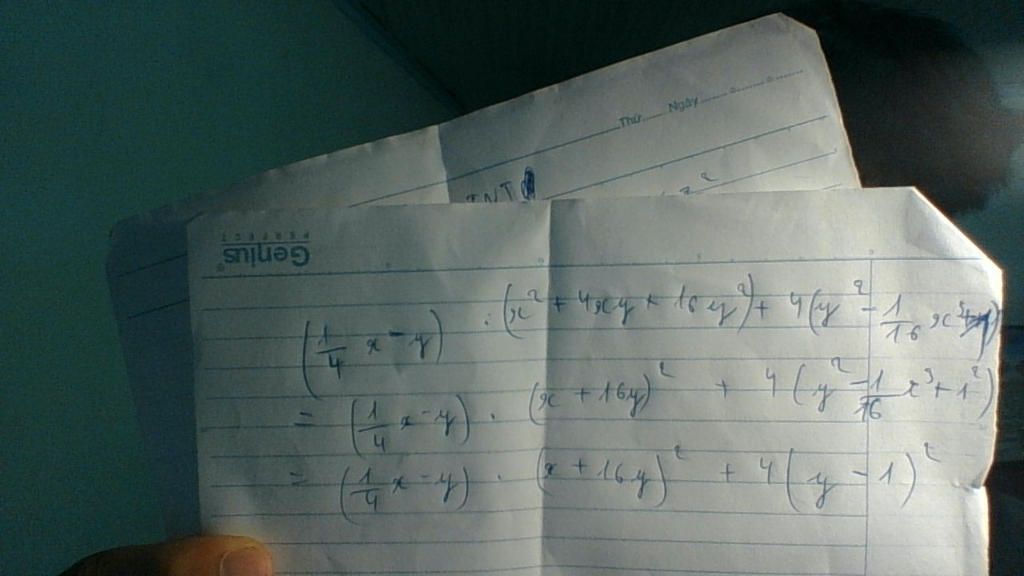 Thứ Ngày
INT
x²
Genius
PERFECT
(1/4 x - y) . (x² + 4xy + 16y²) + 4(y² - 1/16 x³
= (1/4 x - y) . (x + 16y)² + 4(y² - 1/16 x³ + 1²)
= (1/4 x - y) . (x + 16y)² + 4(y - 1)²